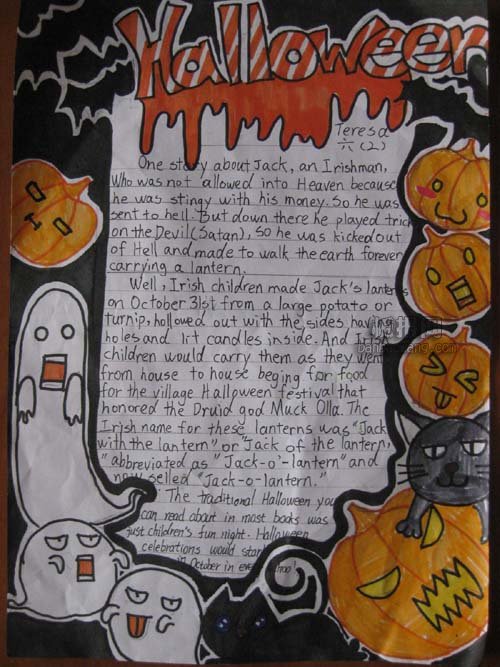 Halloween
Teresa
六（2）
One story about Jack, an Irishman,
Who was not allowed into Heaven because
he was stingy with his money. So he was
sent to hell. But down there he played trick
on the Devil(Satan), so he was kicked out
of Hell and made to walk the earth forever
carrying a lantern.
Well, Irish children made Jack's lanterns
on October 31st from a large potato or
turnip, hollowed out with the sides having
holes and lit candles inside. And Irish
children would carry them as they went
from house to house beging for food
for the village Halloween festival that
honored the Druid god Muck Olla. The
Irish name for these lanterns was "Jack
with the lantern" or "Jack of the lantern,
"abbreviated as "Jack-o'-lantern" and
now selled "Jack-o-lantern."
The traditional Halloween you
can read about in most books was
just children's fun night. Halloween
celebrations would start
October in every